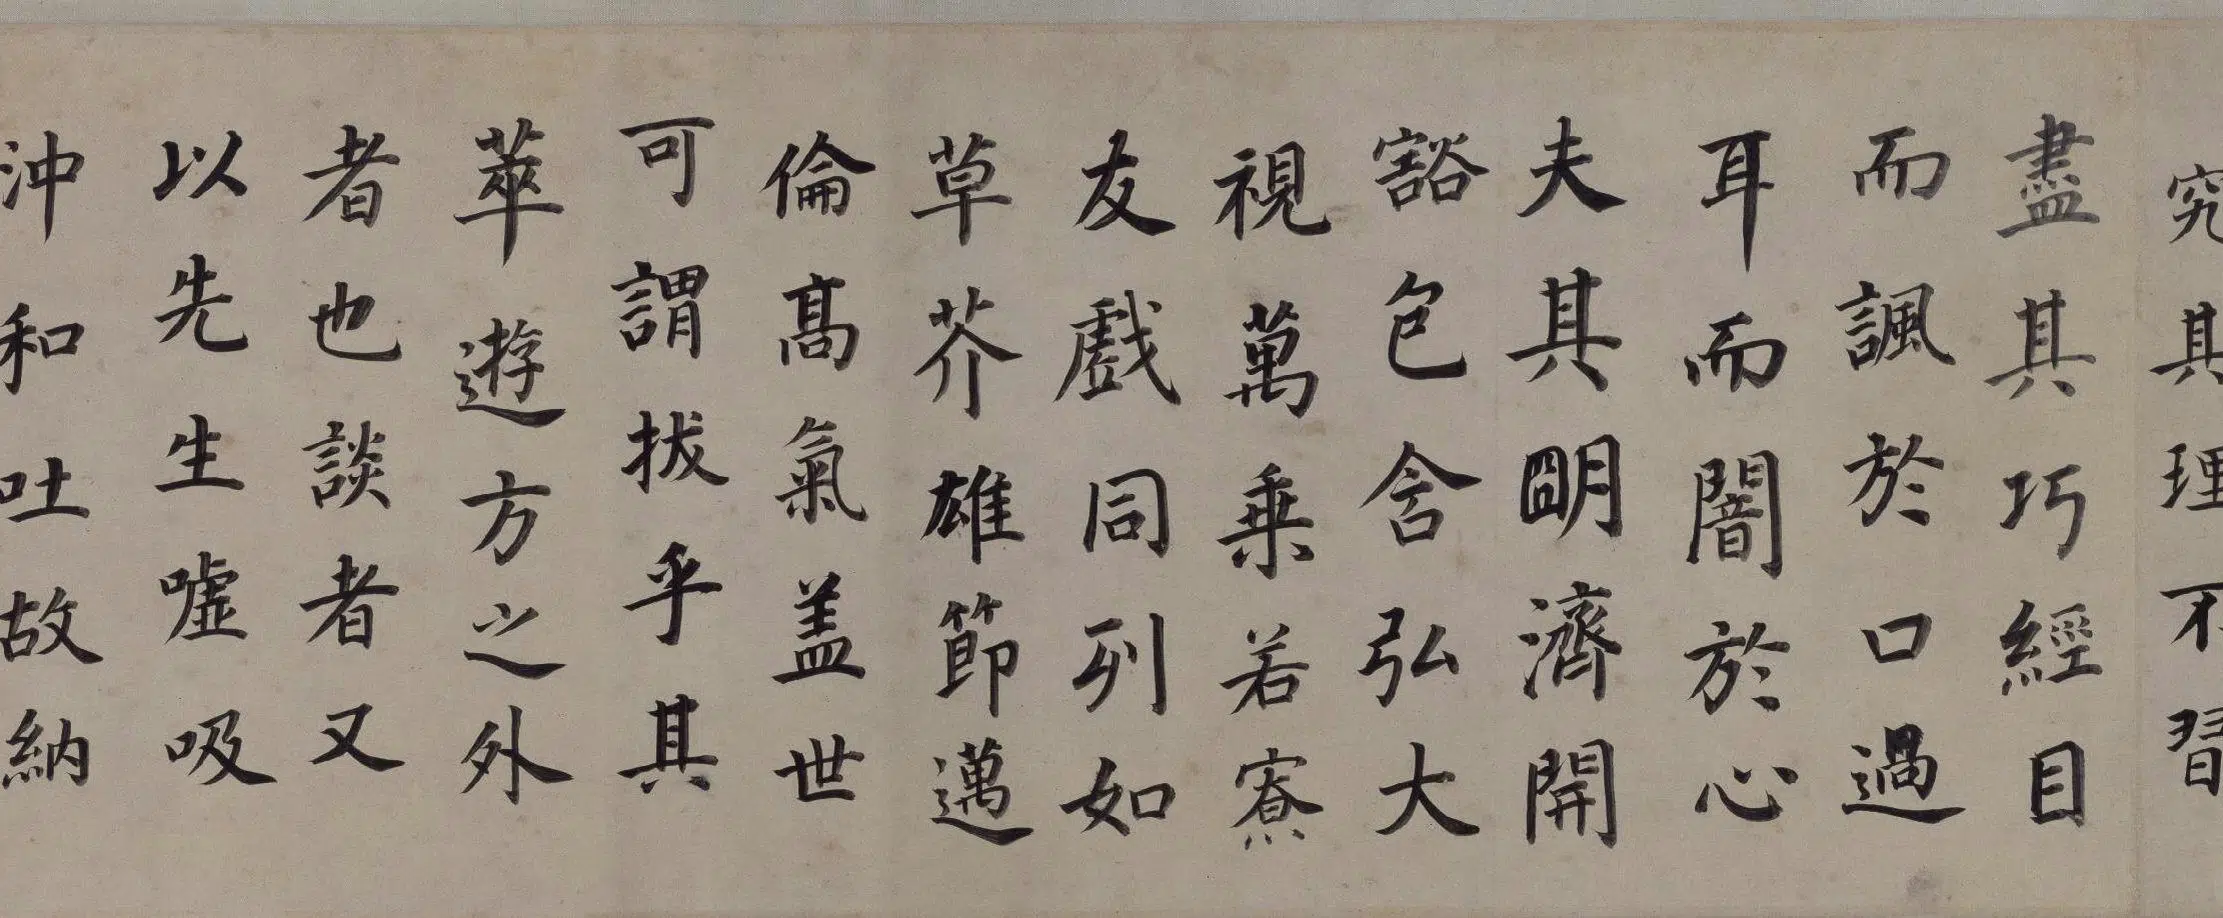 究其理不習
盡其巧經目
而諷於口過
耳而闇於心
夫其明濟開
豁包含弘大
視萬乗若寮
友戲同列如
草芥雄節邁
倫髙氣盖世
可謂拔乎其
萃遊方之外
者也談者又
以先生噓吸
沖和吐故納